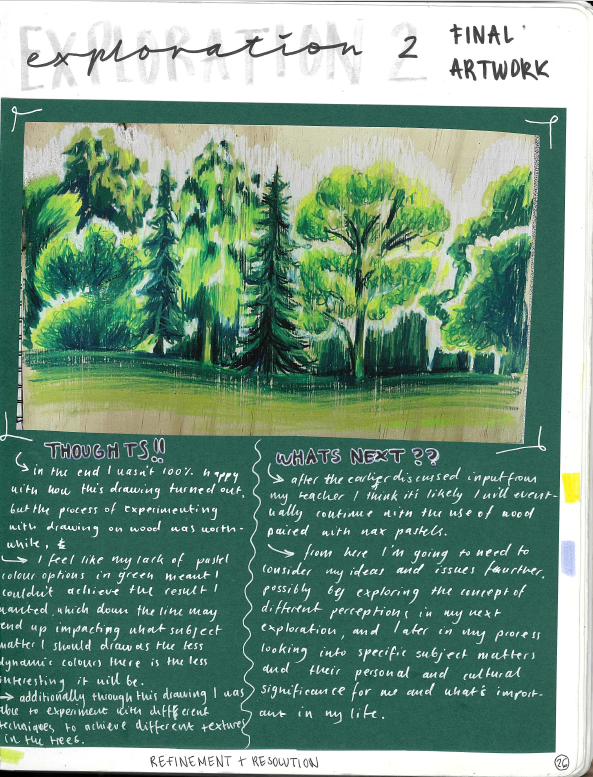 EXPLORATION 2
exploration 2
FINAL
ARTWORK
THOUGHTS!!
↳ in the end I wasn't 100% happy
with how this drawing turned out,
but the process of experimenting
with drawing on wood was worth-
while,
↳ I feel like my lack of pastel
colour options in green meant I
couldn't achieve the result I
wanted, which down the line may
end up impacting what subject
matter I should draw as the less
dynamic colours there is the less
interesting it will be.
→ additionally through this drawing I was
able to experiment with different
techniques to achieve different textures
in the trees.
WHATS NEXT??
↳ after the earlier discussed input from
my teacher I think it's likely I will event-
ually continue with the use of wood
paired with wax pastels.
↳ from here I'm going to need to
consider my ideas and issues further,
possibly by exploring the concept of
different perceptions in my next
exploration, and later in my process
looking into specific subject matters
and their personal and cultural
significance for me and what's import-
ant in my life.
REFINEMENT + RESOLUTION
26